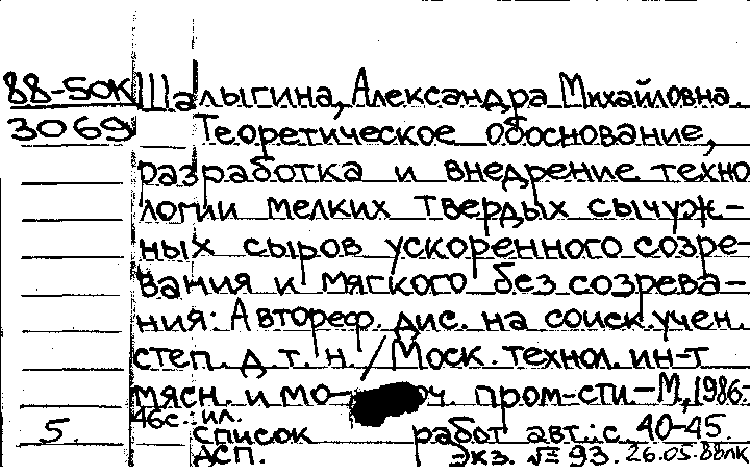 88-50к Шалыгина, Александра Михайловна.
3069 Теоретическое обоснование,
разработка и внедрение техно
логии мелких твердых сычуж-
ных сыров ускоренного созре-
вания и мягкого без созрева-
ния: Автореф. дис. на соиск. учен.
степ. д. т. н. / Моск. технол. ин-т
мясн. и мо- оч. пром-сти - М, 1986.
46с.: ил.
5. список работ авт.: с. 40-45.
ДСП. Экз. № 93. 26.05.88